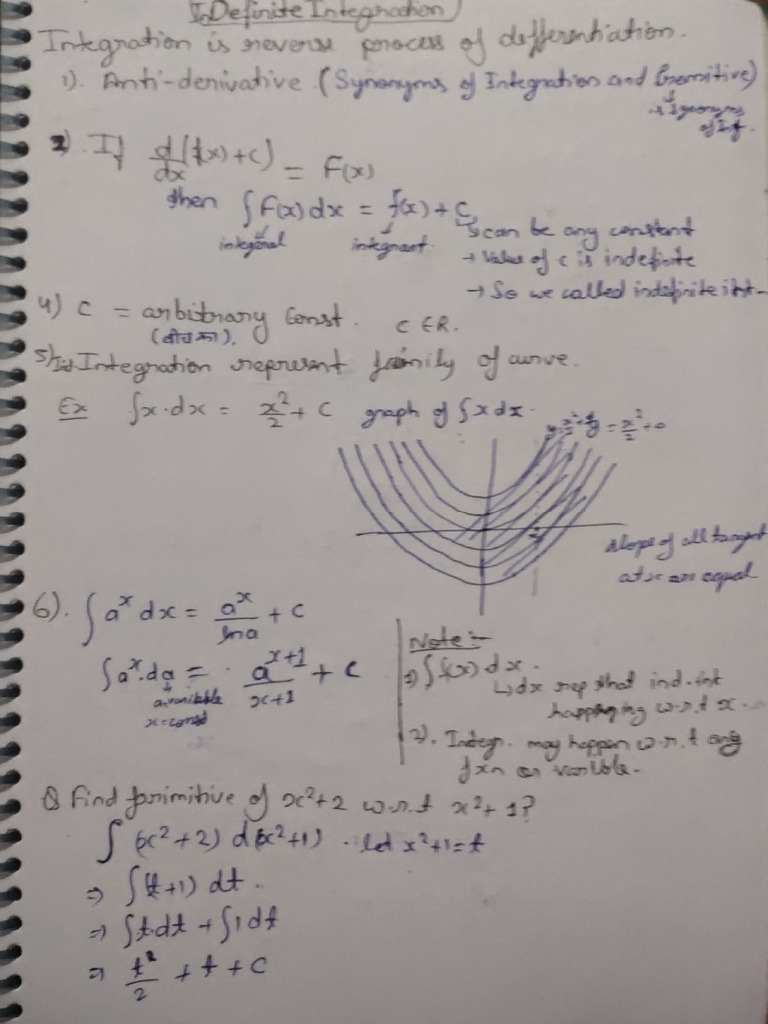 InDefinite Integration
Integration is reverse process of differentiation.
1). Anti-derivative. (Synonyms of Integration and Primitive)
is Synonyms
of Int.
2). If d/dx (f(x)+c) = F(x)
then ∫F(x)dx = f(x) + C
integral integrant
↳ can be any constant
→ Value of c is indefinite
→ So we called indefinite int.
4) C = arbitrary Const. C ∈ R.
5) Ind Integration represent family of curve.
Ex ∫x·dx = x²/2 + C graph of ∫x dx.
y = x²/2 + 0
slope of all tangent
at x are equal
6). ∫aˣ dx = aˣ/ln a + C
∫aˣ·da = a^(x+1)/(x+1) + C
a variable
x=const
Note:-
1) ∫f(x) dx.
↳ dx rep that ind. int
happening w.r.t x.
2). Integr. may happen w.r.t any
fxn or varible.
Q Find primitive of x²+2 w.r.t x²+1?
∫(x²+2) d(x²+1) . let x²+1=t
⇒ ∫(t+1) dt.
⇒ ∫t dt + ∫1 dt
⇒ t²/2 + t + C